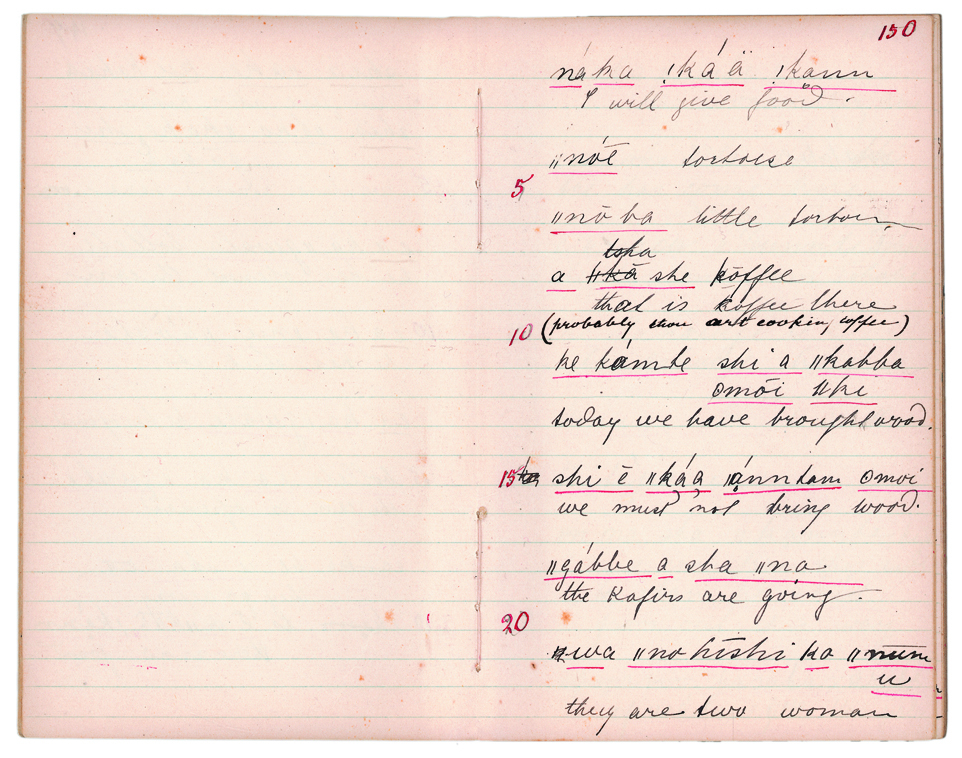 150
náka ǃkáä ǃkann
I will give food.
ǁnóë tortoise
5
ǁnōba little tortoi
tsha
a ǁkā she koffee
that is koffee there
10 (probably thou art cooking coffee)
ke kamte shi a ǁkabba
ʘmōi ǁki
today we have brought wood.
15 shi ē ǁkáa ǀánntam ʘmoi
we must not bring wood.
ǁgábbe a sha ǁna
the Kafirs are going.
20
wa ǁnohishi ka
u
they are two woman